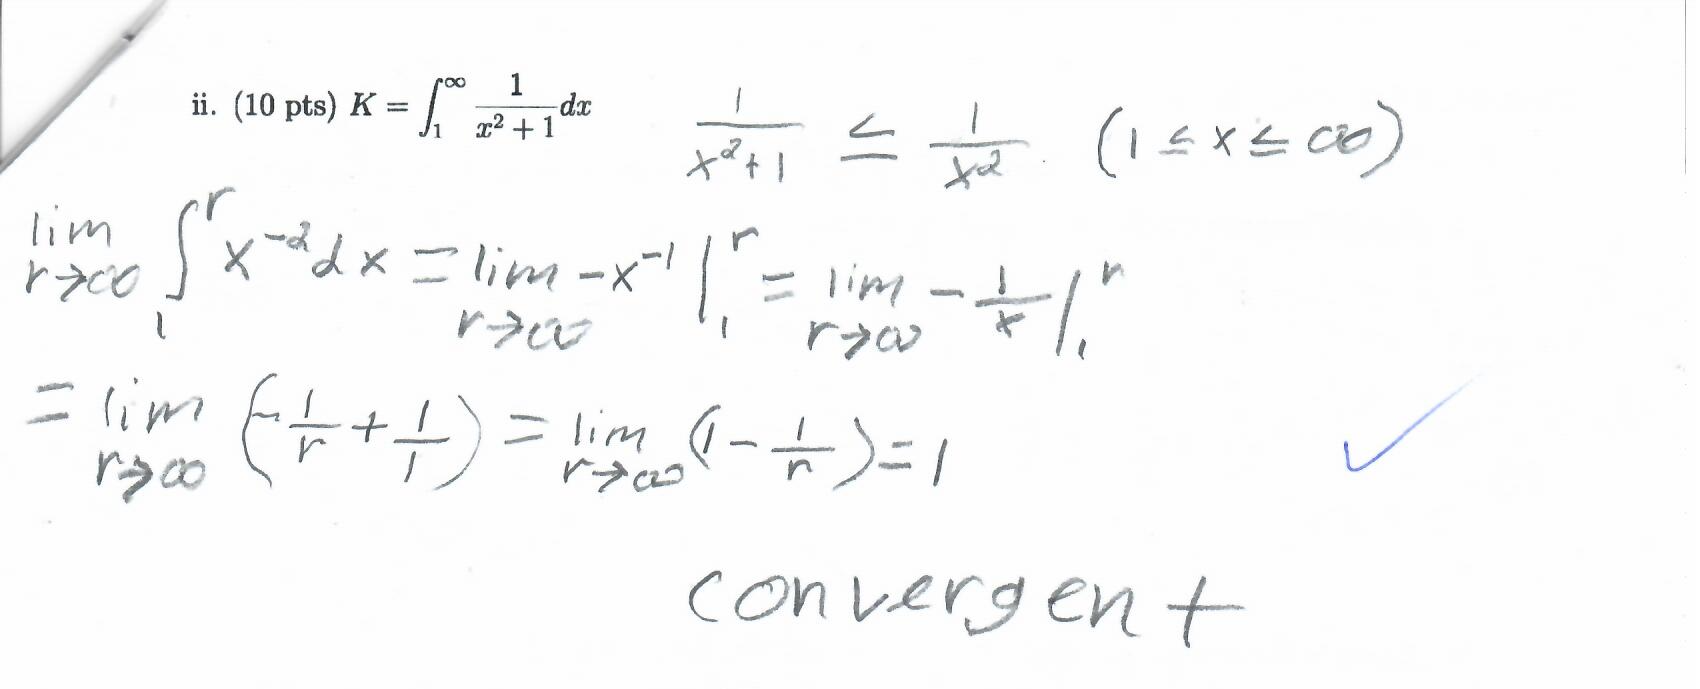 ii. (10 pts) K = ∫₁^∞ 1/(x² + 1) dx    1/(x²+1) ≤ 1/x² (1 ≤ x ≤ ∞)
lim r→∞ ∫₁^r x⁻² dx = lim r→∞ -x⁻¹ |₁^r = lim r→∞ - 1/x |₁^r
= lim r→∞ (-1/r + 1/1) = lim r→∞ (1 - 1/r) = 1
convergent